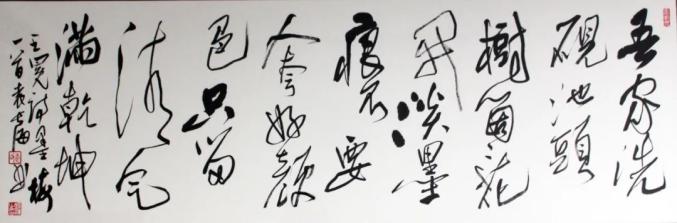 吾家洗
硯池頭
樹箇花
开淡墨
痕不要
人夸好顏
色只留
清气
滿乾坤
王冕詩墨梅
一首